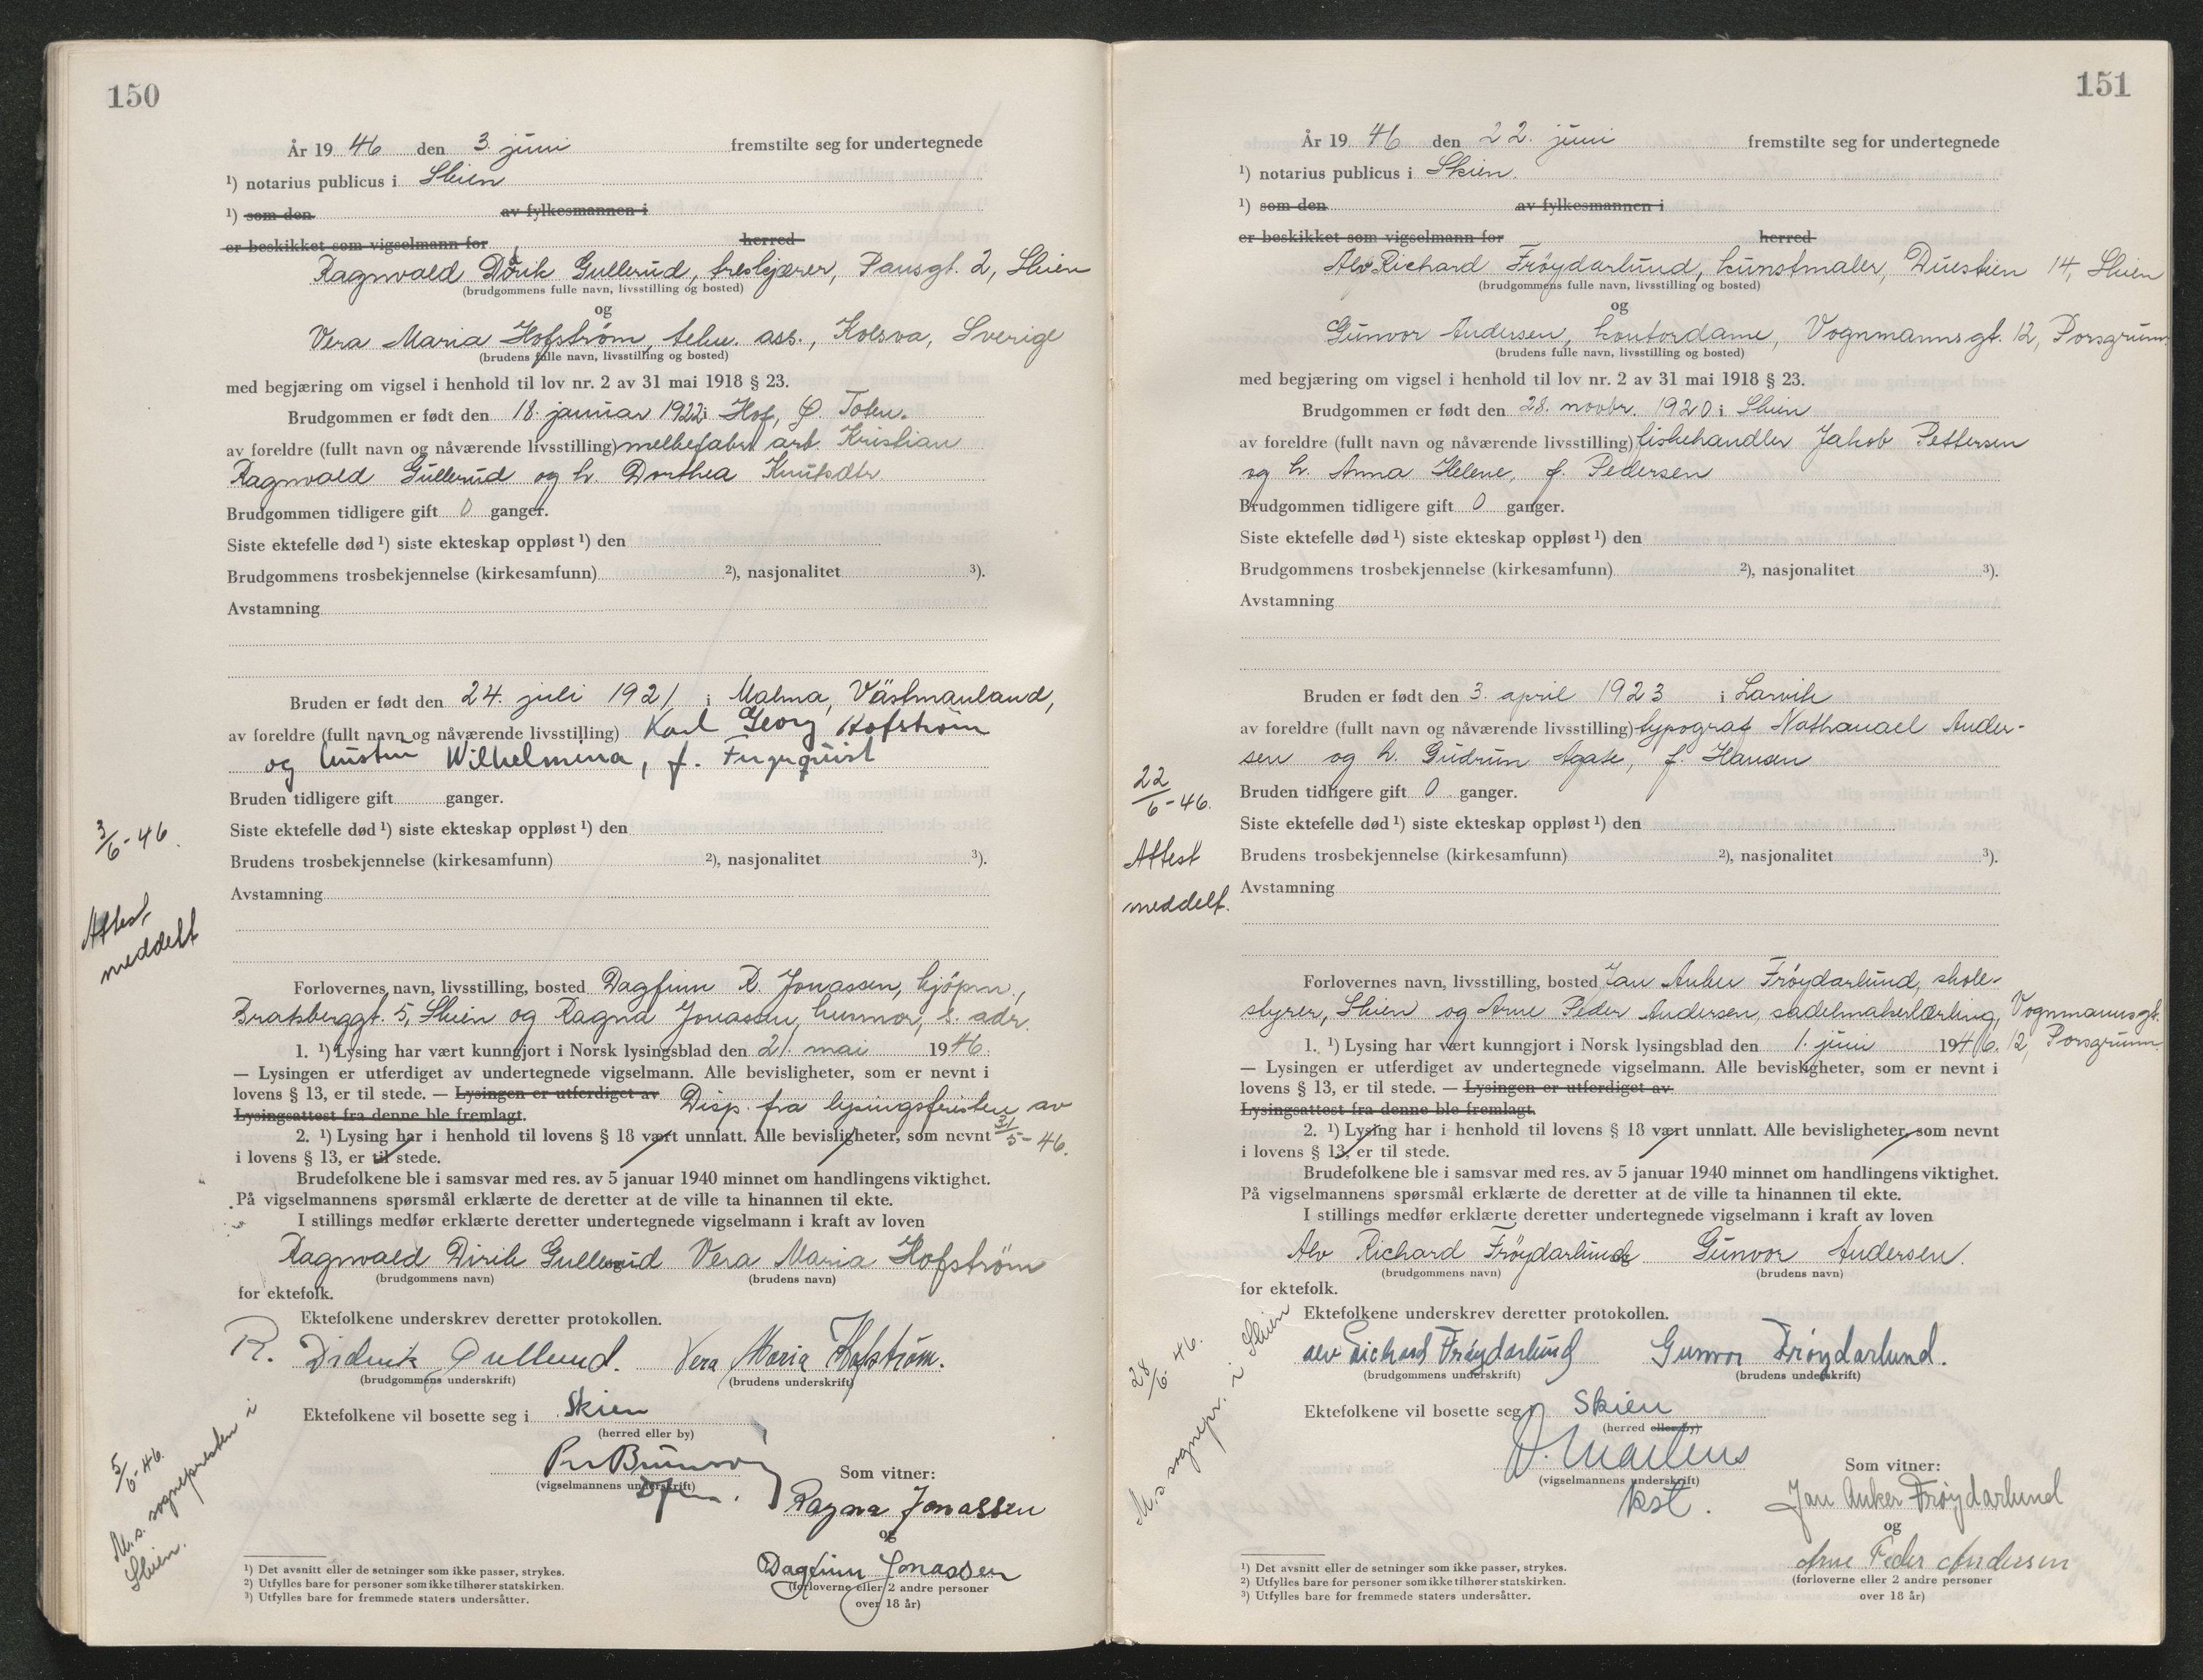 150
År 1946 den 3. juni fremstilte seg for undertegnede
¹) notarius publicus i Skien
¹) som den av fylkesmannen i
er beskikket som vigselmann for herred
Ragnvald Dirik Gullerud, treskjærer, Pausgt. 2, Skien
(brudgommens fulle navn, livsstilling og bosted)
og
Vera Maria Hofstrøm, tekn. ass., Kolsva, Sverige
(brudens fulle navn, livsstilling og bosted)
med begjæring om vigsel i henhold til lov nr. 2 av 31 mai 1918 § 23.
Brudgommen er født den 18. januar 1922 i Hof, Ø. Toten.
av foreldre (fullt navn og nåværende livsstilling) melkefabr. arb. Kristian
Ragnvald Gullerud og h. Dorthea Knutsdtr.
Brudgommen tidligere gift 0 ganger.
Siste ektefelle død ¹) siste ekteskap oppløst ¹) den
Brudgommens trosbekjennelse (kirkesamfunn) ²), nasjonalitet ³).
Avstamning
Bruden er født den 24. juli 1921 i Malma, Västmanland,
av foreldre (fullt navn og nåværende livsstilling) Karl Georg Hofstrøm
og Wilhelmina, f.
Bruden tidligere gift ganger.
Siste ektefelle død ¹) siste ekteskap oppløst ¹) den
Brudens trosbekjennelse (kirkesamfunn) ²), nasjonalitet ³).
Avstamning
3/6-46.
Attest
meddelt
Forlovernes navn, livsstilling, bosted Dagfinn R. Jonassen, kjøpm.,
Bratsberggt. 5, Skien og Ragna Jonassen, husmor, s. adr.
1. ¹) Lysing har vært kunngjort i Norsk lysingsblad den 21. mai 1946.
— Lysingen er utferdiget av undertegnede vigselmann. Alle bevisligheter, som er nevnt i
lovens § 13, er til stede. — Lysingen er utferdiget av Disp. fra lysingsfristen av
Lysingsattest fra denne ble fremlagt. 31/5-46.
2. ¹) Lysing har i henhold til lovens § 18 vært unnlatt. Alle bevisligheter, som nevnt
i lovens § 13, er til stede.
Brudefolkene ble i samsvar med res. av 5 januar 1940 minnet om handlingens viktighet.
På vigselmannens spørsmål erklærte de deretter at de ville ta hinannen til ekte.
I stillings medfør erklærte deretter undertegnede vigselmann i kraft av loven
Ragnvald Dirik Gullerud Vera Maria Hofstrøm
(brudgommens navn) (brudens navn)
for ektefolk.
Ektefolkene underskrev deretter protokollen.
R. Didrik Gullerud. Vera Maria Hofstrøm.
(brudgommens underskrift) (brudens underskrift)
Ektefolkene vil bosette seg i Skien
(herred eller by)
(vigselmannens underskrift)
Som vitner:
Ragna Jonassen
og
Dagfinn Jonassen
(forloverne eller 2 andre personer
over 18 år)
5/6-46.
M.s. sognepresten i
Skien.
¹) Det avsnitt eller de setninger som ikke passer, strykes.
²) Utfylles bare for personer som ikke tilhører statskirken.
³) Utfylles bare for fremmede staters undersåtter.
151
År 1946 den 22. juni fremstilte seg for undertegnede
¹) notarius publicus i Skien.
¹) som den av fylkesmannen i
er beskikket som vigselmann for herred
Alv Richard Frøydarlund, kunstmaler, Duestien 14, Skien
(brudgommens fulle navn, livsstilling og bosted)
og
Gunvor Andersen, kontordame, Vognmannsgt. 12, Porsgrunn.
(brudens fulle navn, livsstilling og bosted)
med begjæring om vigsel i henhold til lov nr. 2 av 31 mai 1918 § 23.
Brudgommen er født den 28. novbr. 1920 i Skien
av foreldre (fullt navn og nåværende livsstilling) fiskehandler Jakob Pettersen
og h. Anna Helene, f. Pedersen
Brudgommen tidligere gift 0 ganger.
Siste ektefelle død ¹) siste ekteskap oppløst ¹) den
Brudgommens trosbekjennelse (kirkesamfunn) ²), nasjonalitet ³).
Avstamning
Bruden er født den 3. april 1923 i Larvik
av foreldre (fullt navn og nåværende livsstilling) typograf Nathanael Ander-
sen og h. Gudrun Agate, f. Hansen
Bruden tidligere gift 0 ganger.
Siste ektefelle død ¹) siste ekteskap oppløst ¹) den
Brudens trosbekjennelse (kirkesamfunn) ²), nasjonalitet ³).
Avstamning
22/6-46.
Attest
meddelt.
Forlovernes navn, livsstilling, bosted Jan Anker Frøydarlund, skole-
styrer, Skien og Arne Peder Andersen, sadelmakerlærling, Vognmannsgt.
12, Porsgrunn.
1. ¹) Lysing har vært kunngjort i Norsk lysingsblad den 1. juni 1946.
— Lysingen er utferdiget av undertegnede vigselmann. Alle bevisligheter, som er nevnt i
lovens § 13, er til stede. — Lysingen er utferdiget av
Lysingsattest fra denne ble fremlagt.
2. ¹) Lysing har i henhold til lovens § 18 vært unnlatt. Alle bevisligheter, som nevnt
i lovens § 13, er til stede.
Brudefolkene ble i samsvar med res. av 5 januar 1940 minnet om handlingens viktighet.
På vigselmannens spørsmål erklærte de deretter at de ville ta hinannen til ekte.
I stillings medfør erklærte deretter undertegnede vigselmann i kraft av loven
Alv Richard Frøydarlund Gunvor Andersen.
(brudgommens navn) (brudens navn)
for ektefolk.
Ektefolkene underskrev deretter protokollen.
Alv Richard Frøydarlund Gunvor Frøydarlund.
(brudgommens underskrift) (brudens underskrift)
Ektefolkene vil bosette seg i Skien
(herred eller by)
(vigselmannens underskrift)
kst.
Som vitner:
Jan Anker Frøydarlund
og
Arne Peder Andersen
(forloverne eller 2 andre personer
over 18 år)
28/6-46.
M.s. sognepr. i Skien
¹) Det avsnitt eller de setninger som ikke passer, strykes.
²) Utfylles bare for personer som ikke tilhører statskirken.
³) Utfylles bare for fremmede staters undersåtter.